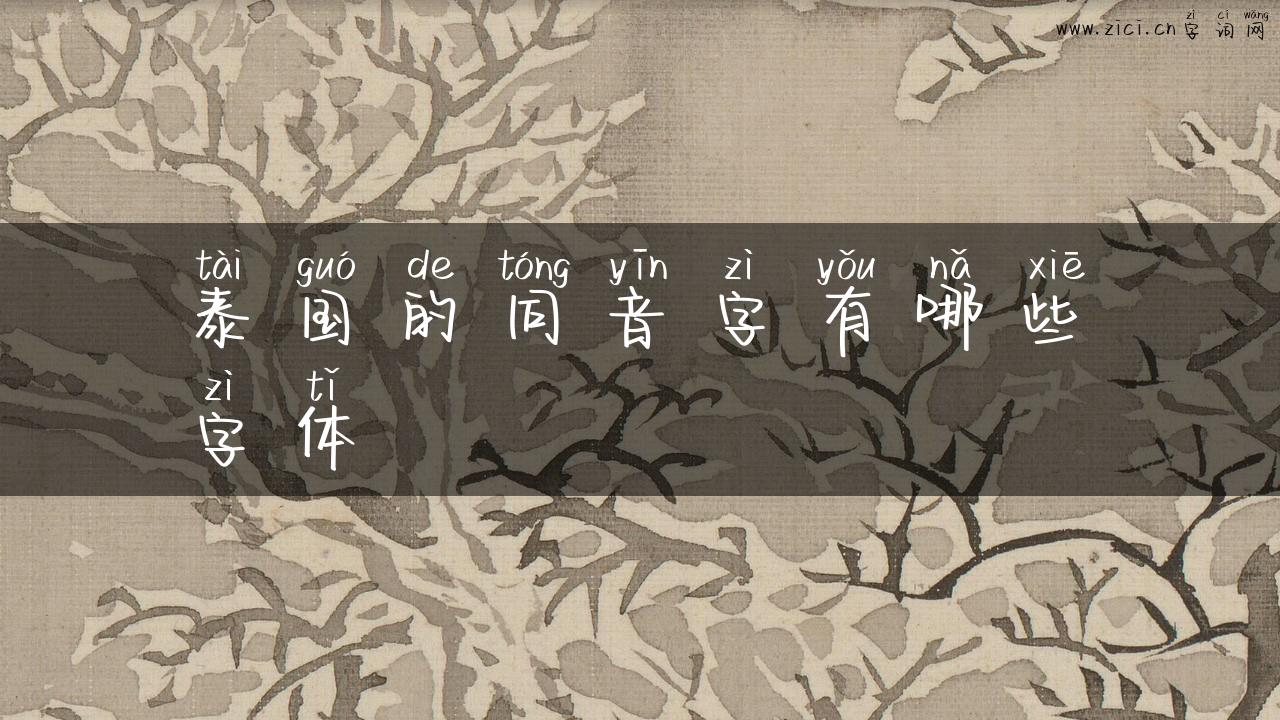 zì cí wǎng
www.zici.cn字词网
tài guó de tóng yīn zì yǒu nǎ xiē
泰国的同音字有哪些
zì tǐ
字体